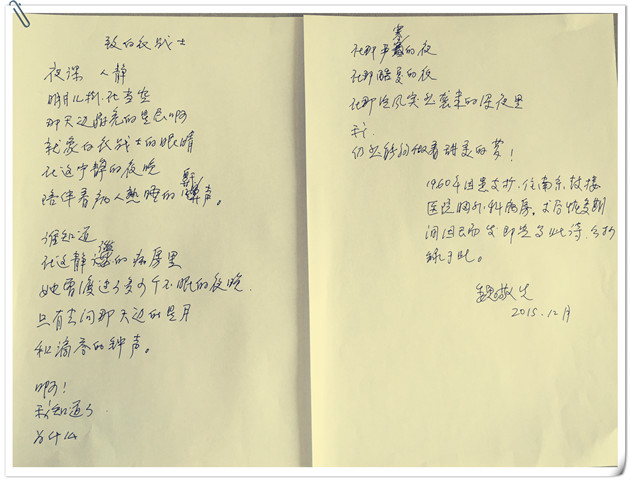 致白衣战士
夜深 人静
明月儿挂在当空
那天边最亮的星星啊
就象白衣战士的眼睛
在这宁静的夜晚
陪伴着病人熟睡的鼾声。
谁知道
在这静谧的病房里
她曾渡过了多少个不眠的夜晚
只有去问那天边的星月
和滴答的钟声。
啊!
我知道了
为什么
在那严寒的夜
在那酷夏的夜
在那冷风突然袭来的深夜里
我
仍然能够做着甜美的梦!
1960年因患支扩,住南京鼓楼
医院胸外科病房,术后恢复期
间因有而发即书了此诗,今抄
录于此。
魏敬先
2015.12月